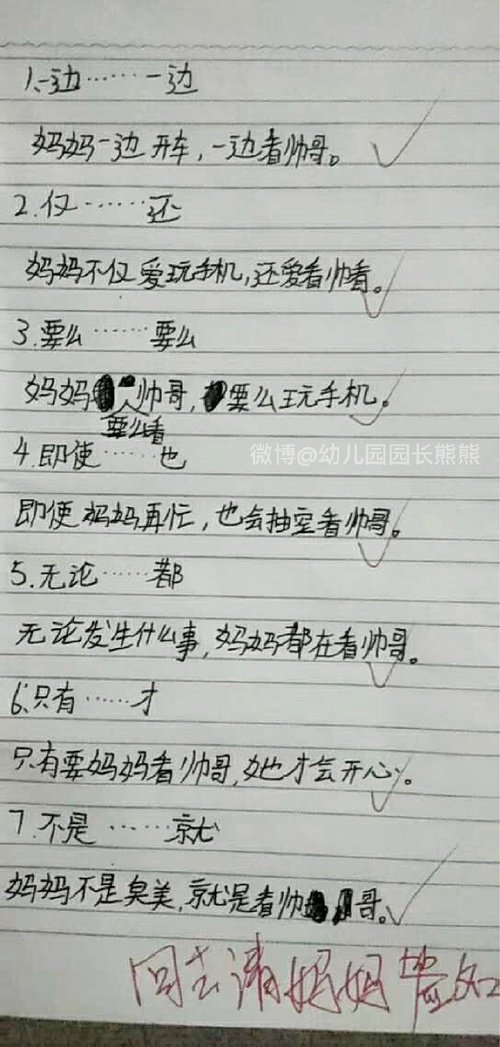 1.一边……一边
妈妈一边开车，一边看帅哥。
2.仅……还
妈妈不仅爱玩手机，还爱看帅看。
3.要么……要么
妈妈要么看帅哥，要么玩手机。
4.即使……也
微博@幼儿园园长熊熊
即使妈妈再忙，也会抽空看帅哥。
5.无论……都
无论发生什么事，妈妈都在看帅哥。
6.只有……才
只有要妈妈看帅哥，她才会开心。
7.不是……就
妈妈不是臭美，就是看帅哥。
回去请妈妈